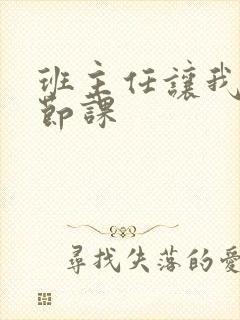 班主任讓我
節課
尋找失落的愛